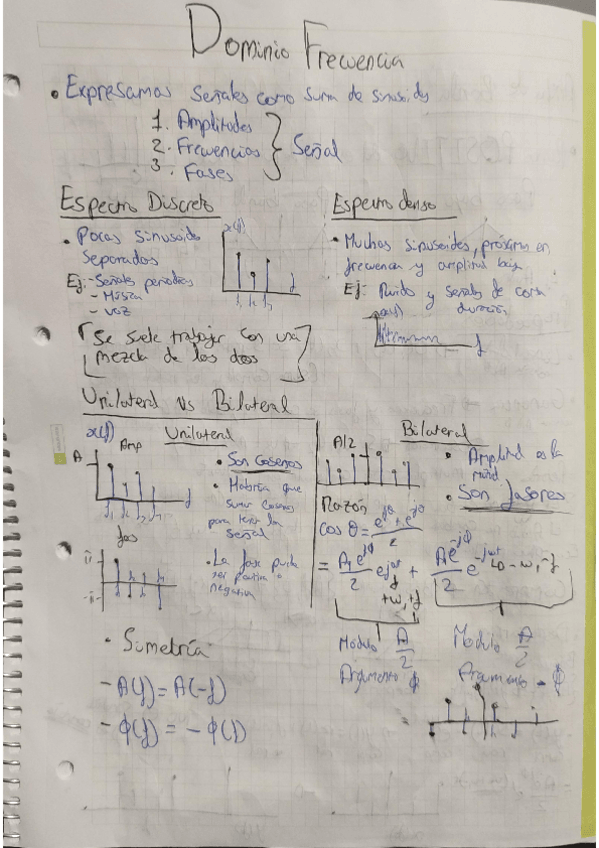 Dominio Frecuencia
• Expresamos señales como suma de sinusoides
1. Amplitudes
2. Frecuencias
3. Fases
} Señal
Espectro Discreto
• Pocas sinusoides
separados
Ej: - Señales periodicas
- Música
- voz
x(f)
f₁ f₂ f₃ f
Espectro denso
• Muchas sinusoides, próximas en
frecuencia y amplitud baja
Ej: Ruido y señales de corta
duración
x(f)
f
[Se suele trabajar con una
mezcla de los dos]
Unilateral vs Bilateral
x(f) Unilateral
Amp
A
f₁ f₂ f₃ f₄ f
• Son cosenos
• Habría que
sumar cosenos
para tener la
señal
fas
π
-π
• La fase puede
ser positiva o
negativa
Bilateral
A/2
• Amplitud es la
mitad
• Son fasores
Razón
cos θ = (e^{jθ} + e^{-jθ})/2
= A₁e^{jϕ}/2 e^{jωt} + A₁e^{-jϕ}/2 e^{-jωt}
+ω, +f
-ω, -f
Modulo A/2
Argumento ϕ
Modulo A/2
Argumento -ϕ
• Simetría
- A(f) = A(-f)
- ϕ(f) = -ϕ(f)